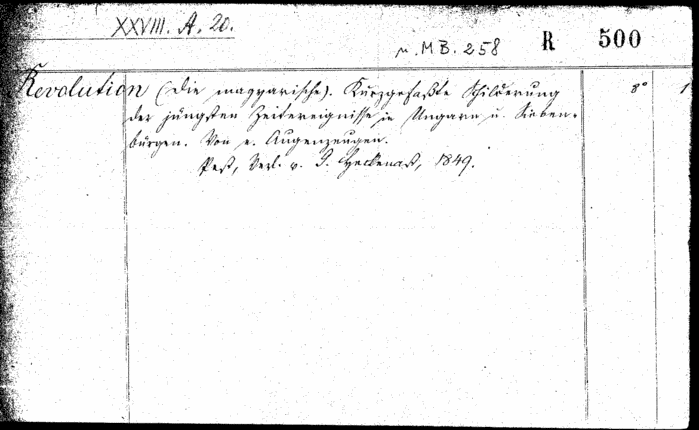 XXVIII. A. 20.
n. MB. 258
R 500
Revolution (die magyarische). Kurzgefaßte Schilderung 8° 1
der jüngsten Zeitereignisse in Ungarn u. Sieben-
bürgen. Von e. Augenzeugen.
Pest, Verl. v. G. Heckenast, 1849.